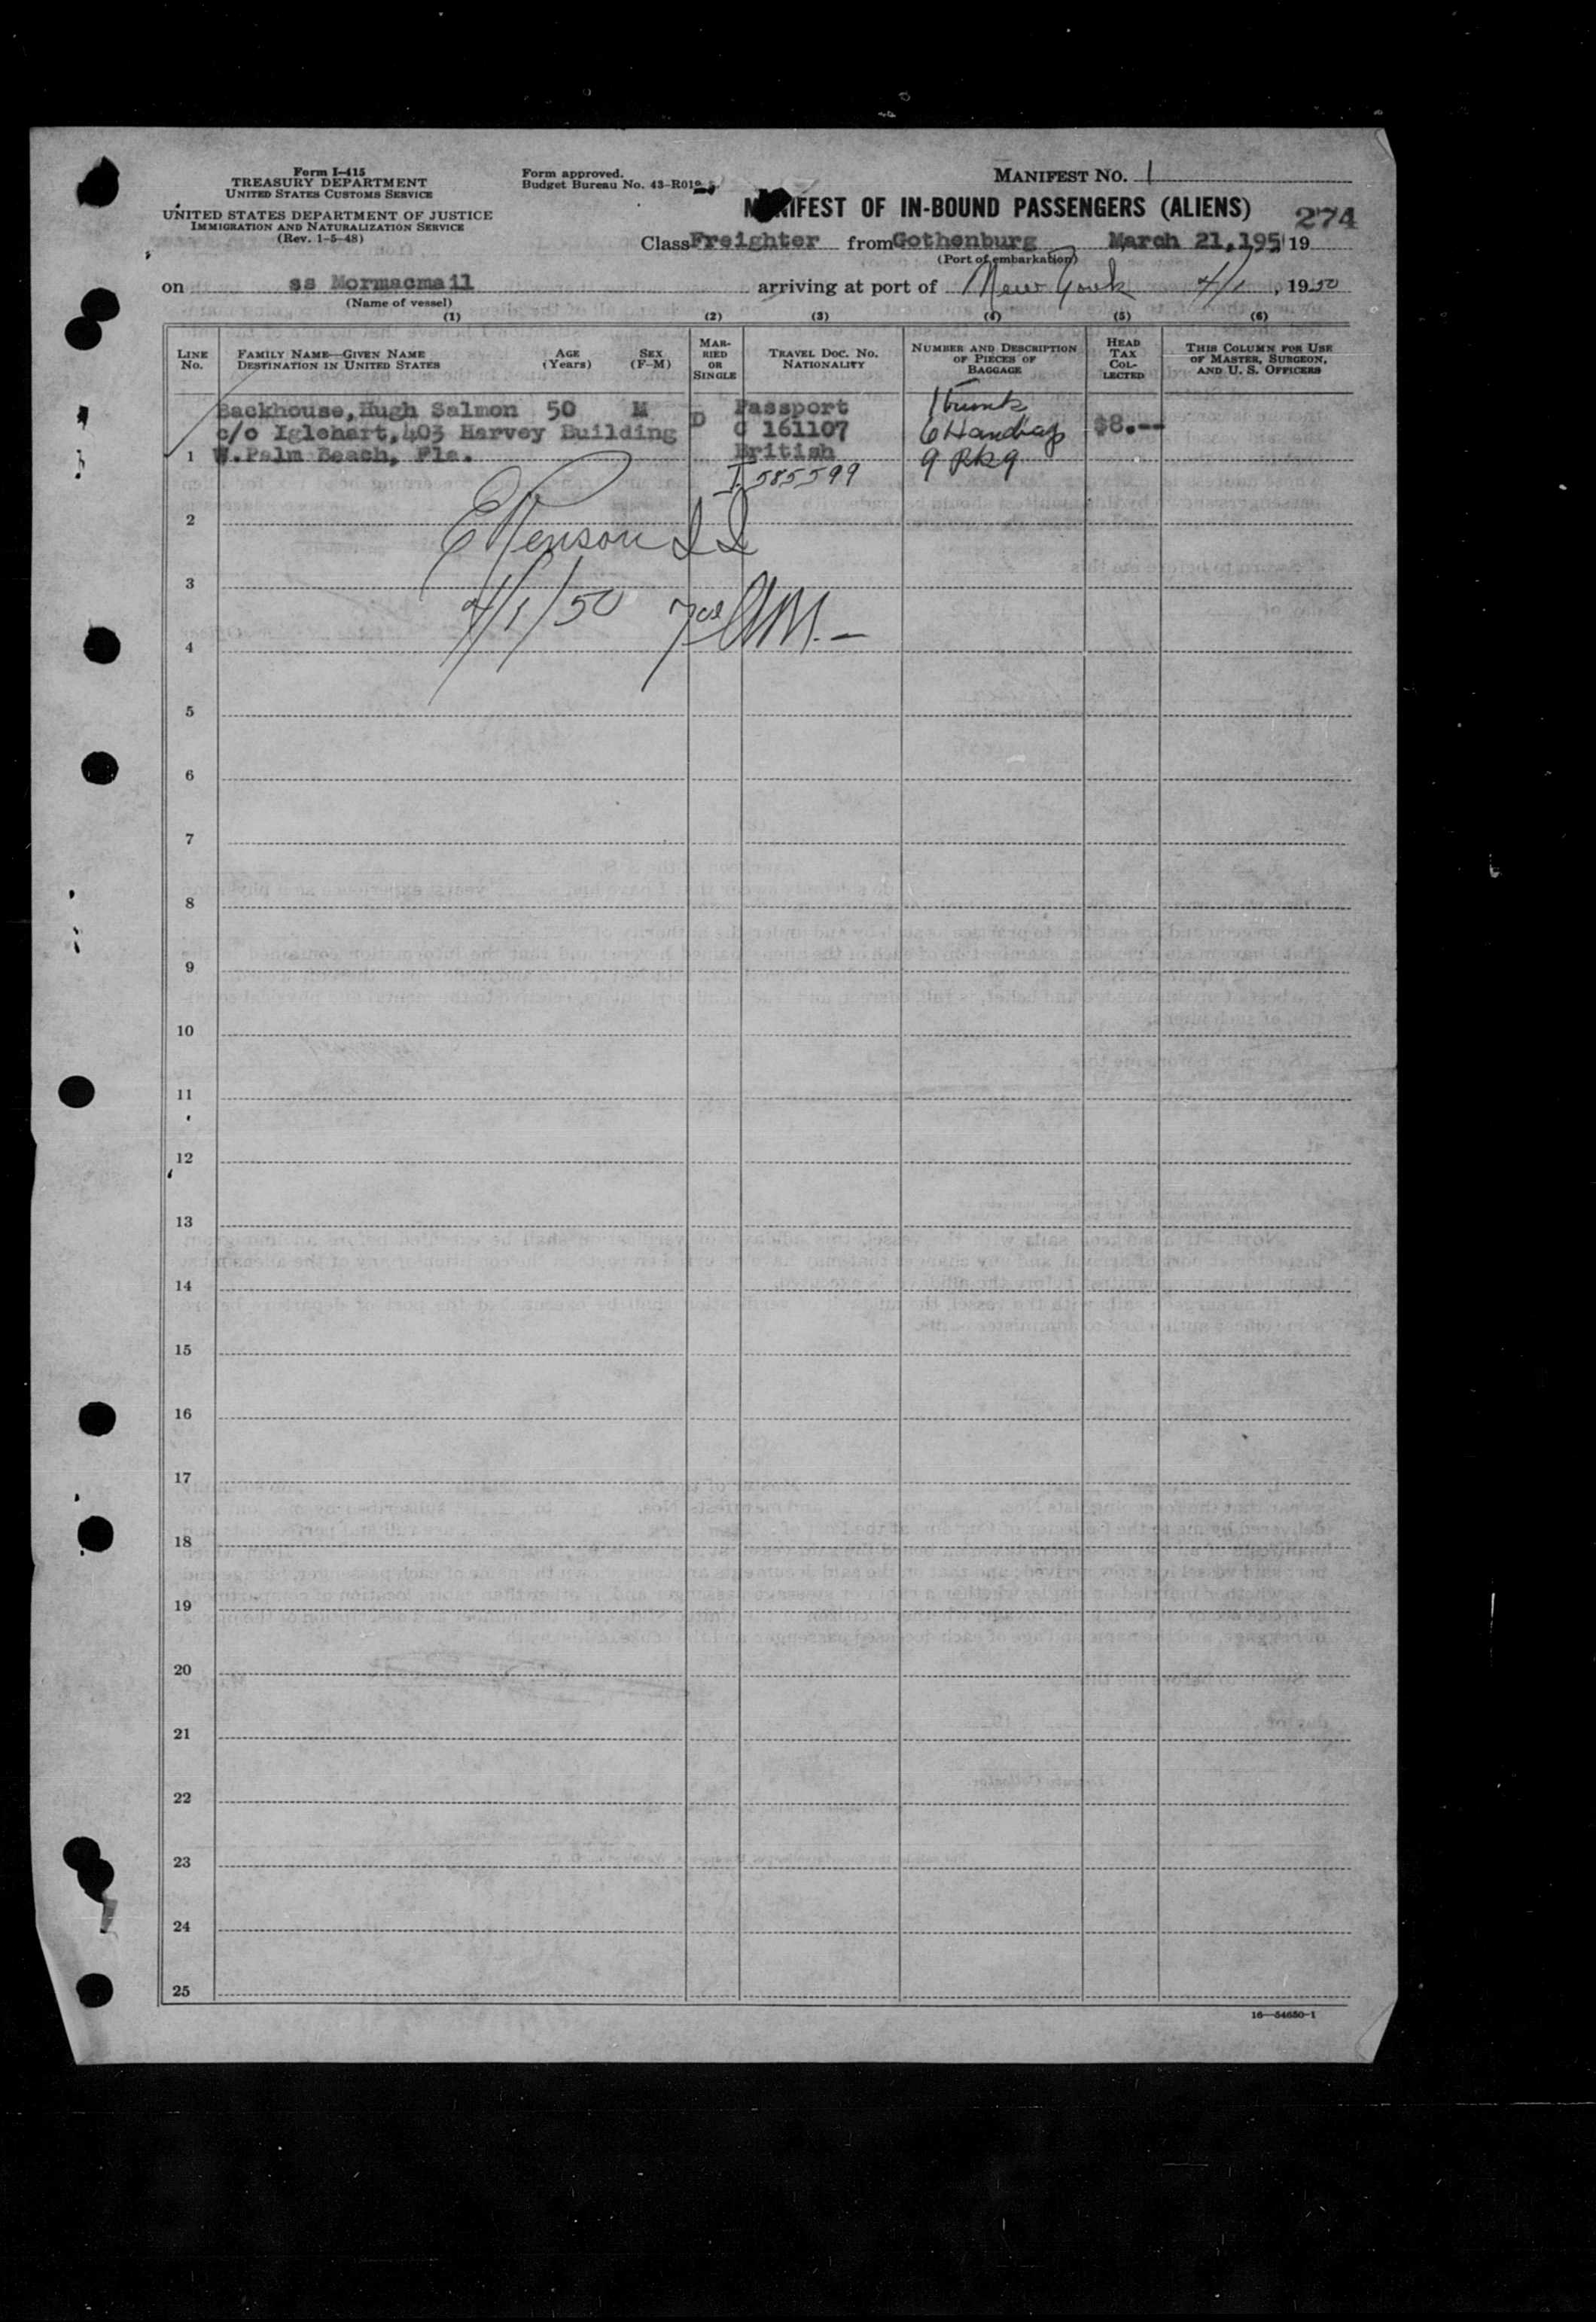 Form I-415
TREASURY DEPARTMENT
UNITED STATES CUSTOMS SERVICE
UNITED STATES DEPARTMENT OF JUSTICE
IMMIGRATION AND NATURALIZATION SERVICE
(Rev. 1-5-48)
Form approved.
Budget Bureau No. 43-R019
MANIFEST NO. 1
MANIFEST OF IN-BOUND PASSENGERS (ALIENS)
274
Class Freighter from Gothenburg March 21, 195 19
(Port of embarkation)
on ss Mormacmail arriving at port of New York 4/1, 1950
(Name of vessel)
(1) (2) (3) (4) (5) (6)
LINE No.
FAMILY NAME—GIVEN NAME
DESTINATION IN UNITED STATES
AGE (Years)
SEX (F-M)
MARRIED OR SINGLE
TRAVEL DOC. NO. NATIONALITY
NUMBER AND DESCRIPTION OF PIECES OF BAGGAGE
HEAD TAX COLLECTED
THIS COLUMN FOR USE OF MASTER, SURGEON, AND U. S. OFFICERS
Backhouse, Hugh Salmon 50 M D Passport 1 Trunk
c/o Iglehart, 403 Harvey Building C 161107 6 Handbags $8.--
1 W. Palm Beach, Fla. British 9 Pkg
I. 585599
2
3
4/1/50
4
5
6
7
8
9
10
11
12
13
14
15
16
17
18
19
20
21
22
23
24
25
16—54650-1